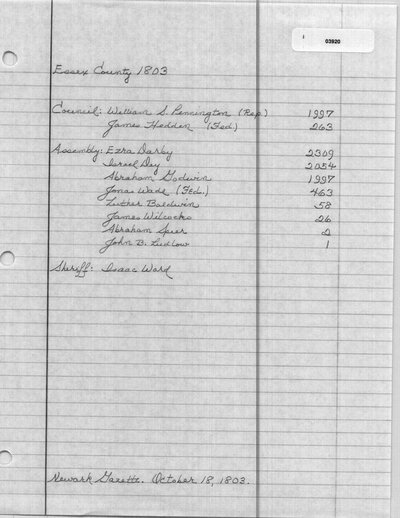 03920
Essex County 1803
Council: William S. Pennington (Rep.) 1997
James Hedden (Fed.) 263
Assembly: Ezra Darby 2309
Israel Day 2054
Abraham Godwin 1997
Jonas Wade (Fed.) 463
Luther Baldwin 58
James Wilcocks 26
Abraham Speer 2
John B. Ludlow 1
Sheriff: Isaac Ward
Newark Gazette. October 18, 1803.